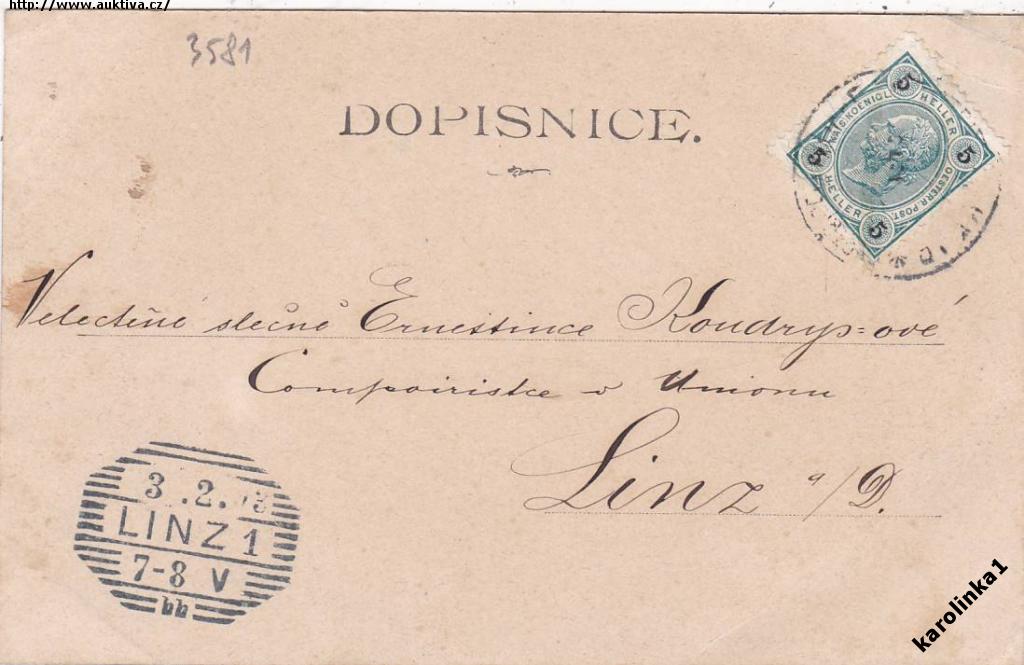 http://www.auktiva.cz/
3581
DOPISNICE.
5 5 5 5
KAIS. KOENIGL. OESTERR. POST.
HELLER HELLER
Velectěné slečně Ernestince Koudrys=ové
Comptoiristce v Unionu
Linz a/D.
3.2.
LINZ 1
7-8 V
bb
karolinka1